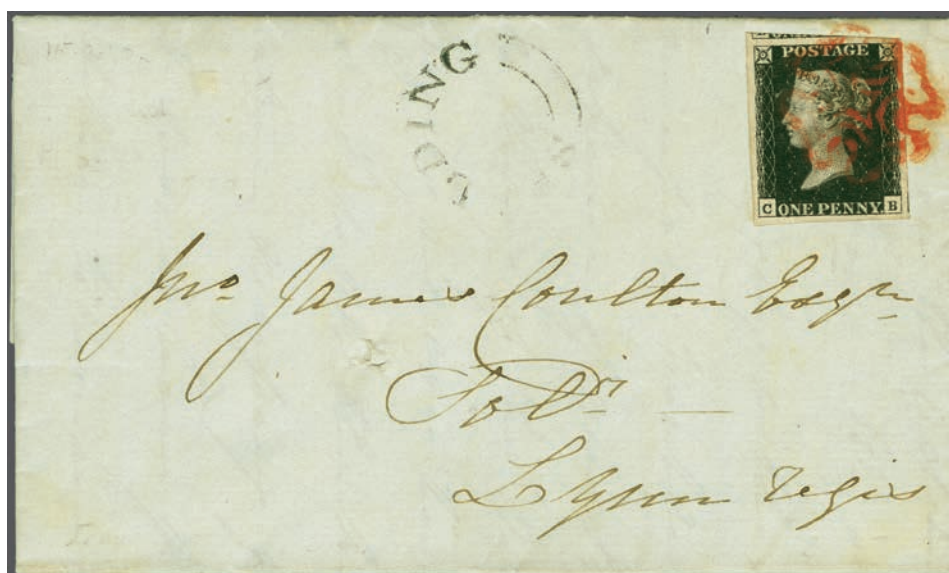 DING
POSTAGE
C ONE PENNY B
Jno. James Coulton Esqre
Solr
Lynn Regis